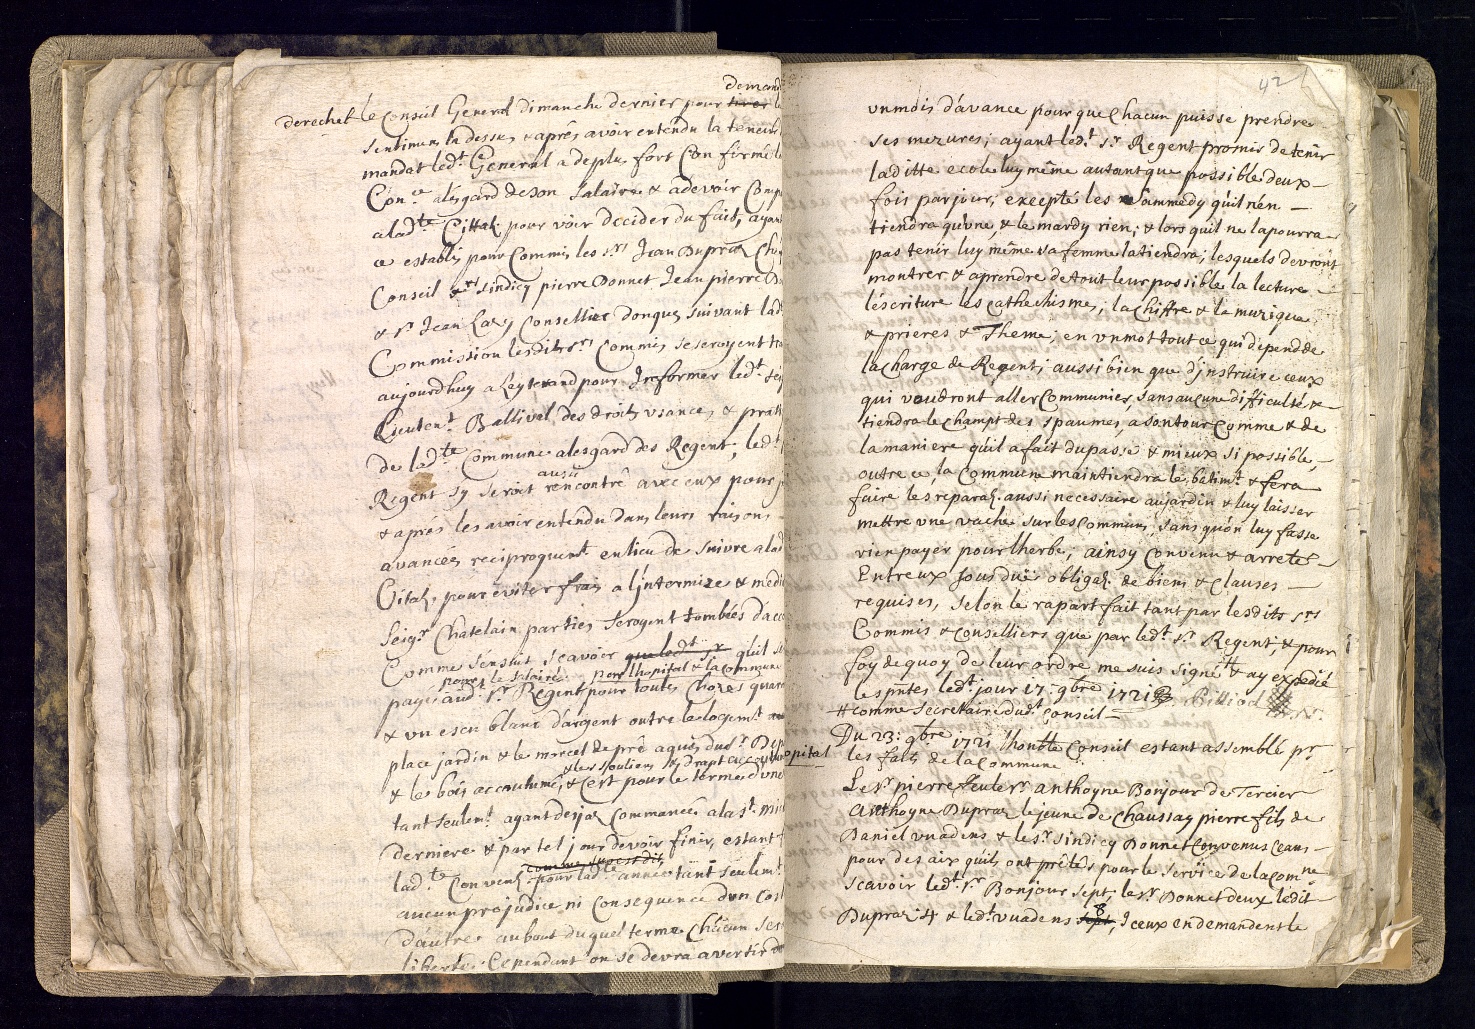 demand
derechet le Conseil General dimanche dernier pour tirer le
sentiment la dessus & aprés avoir entendu la teneur
mandat led.t General a deplus fort Confirmé le
Con.ce alésgard de son Salaire & a devoir Comp
a lad.te Cittãõ. pour voir decider du fait, ayant
ce establis pour Commis les s.rs Jean Dupraz Ch
Conseil & s.r sindicq pierre Donnet Jean pierre D
& s.r Jean Conseiller donques suivant lad
Commission lesdits s.rs Commis se seroyent
aujourdhuy a Leyterand pour Informer led.t seig
Lieuten.t Ballival des droits usance, & prati
de lad.te Commune alesgard des Regent, led.t
aussi
Regent sy seroit rencontré avec eux pour
& aprés les avoir entendu dans leurs raisons
avancés reciproquem.t en lieu de suivre a lad
Citãõ. pour eviter frais a l'intermize & medi
seig.r Chatelain parties seroyent tombées dac
Comme s'ensuit scavoir que led.t s.r qu'il se
pour le salaire par lhopital & la commune
payé aud.t s.r Regent pour toutes Chozes quara
& un escu blanc d'argent outre le logem.t
place jardin & le morcel de pré aquis du s.r Dup
& les souliers & drapt accoutumé
& les bois accoutumé, & c'est pour le terme d'une
tant seulem.t ayant desja Commancée a la s.t mich
derniere & par tel jour devoir finir, estant
comme sus est dit
lad.te Convenõ. pour lad.te année tant seulem.t
aucun prejudice ni consequence dun cost
d'autre au bout du quel terme Chacun ser
liberté. Cependant on se devra avertir
42
un mois d'avance pour que Chacun puisse prendre
ses mezures; ayant led.t s.r Regent promis de tenir
laditte ecole luy même autant que possible deux
fois par jours, excepté les Sammedy qu'il n'en
tiendra qu'une, & le mardy rien; & lors quil ne la pourra
pas tenir luy même sa femme la tiendra; lesquels devront
montrer & aprendre de tout leur possible la lecture
léscriture lés cathechisme, la Chiffre & la muzique
& prieres & Theme; en un mot tout ce qui depend de
la Charge de Regent; aussi bien que d'instruire ceux
qui voudront aller Communier, sans aucune difficulté &
tiendra le champt des spaumes, a son tour Comme & de
la maniere qu'il a fait du passé & mieux si possible,
outre ce, la Commune maintiendra le batim.t & fera
faire les reparaõ. aussi necessaire au jardin & luy laisser
mettre une vache sur les Commun, sans qu'on luy fasse
rien payer pour lherbe; ainsy Convenu & arreté
Entreux sous due obligaõ. de biens & Clauses
requises, selon le rapart fait tant par lesdits s.rs
Commis & Conselliers que par led.t s.r Regent, & pour
foy de quoy de leur ordre me suis signé # & ay expedié
les pntes led.t jour 17. 9bre 1721 Billiod
# comme secretaire dud.t Conseil
Du 23: 9bre 1721 lhon.ble Conseil estant assemblé pr
hopital
les faits de la Commune
Le s.r pierre ffeu le s.r anthoyne Bonjour de Tercier
Anthoyne Dupraz le jeune de Chaussay pierre fils de
Daniel vuadens & le s.r sindicq Donnet Convenus Ceans
pour des aix quils ont prêtés pour le service de la Com.ne
scavoir led.t s.r Bonjour sept, le s.r Donnet deux ledit
8
Dupraz 4 & led.t vuadens sept, Iceux en demandent le